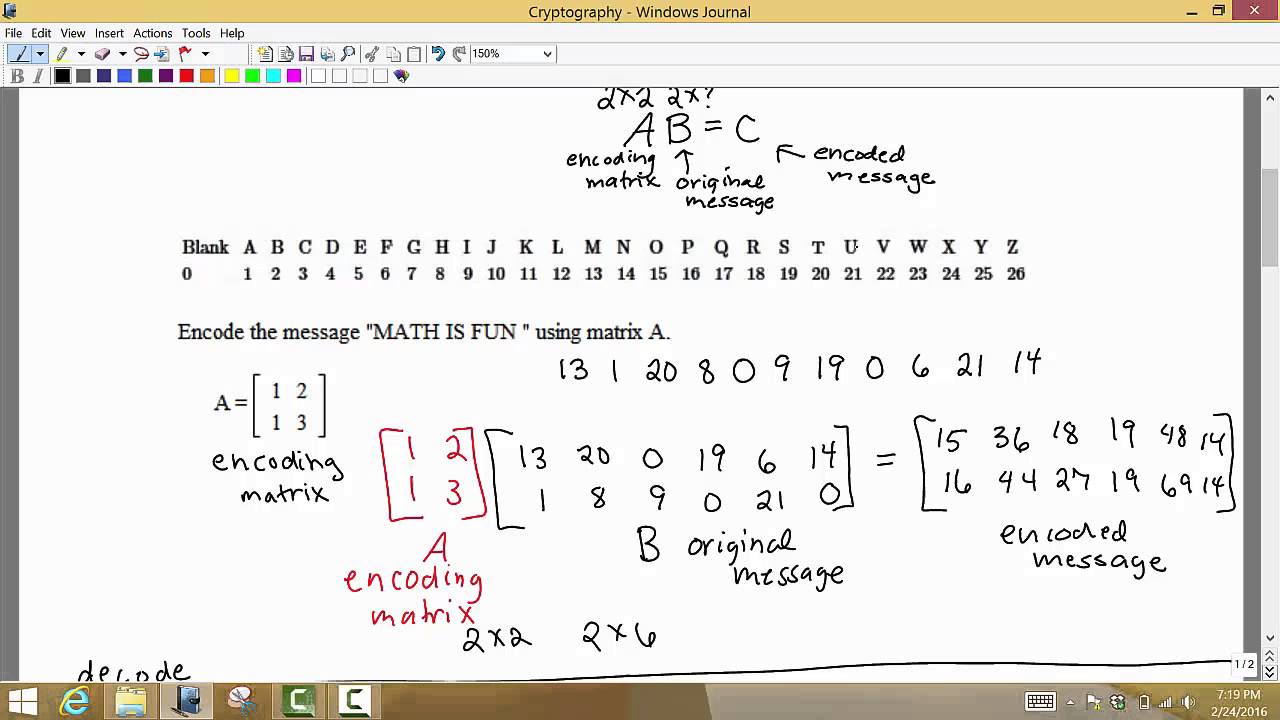 Cryptography - Windows Journal
File Edit View Insert Actions Tools Help
150%
B I
2x2 2x?
A B = C
encoding matrix
original message
encoded message
Blank A B C D E F G H I J K L M N O P Q R S T U V W X Y Z
0 1 2 3 4 5 6 7 8 9 10 11 12 13 14 15 16 17 18 19 20 21 22 23 24 25 26
Encode the message "MATH IS FUN " using matrix A.
13 1 20 8 0 9 19 0 6 21 14
A = [ 1 2
1 3 ]
encoding
matrix
[ 1 2 [ 13 20 0 19 6 14 ] = [ 15 36 18 19 48 14 ]
1 3 ] 1 8 9 0 21 0 ] 16 44 27 19 69 14 ]
A
encoding
matrix
B original
message
encoded
message
2x2 2x6
decode
1/2
7:19 PM
2/24/2016